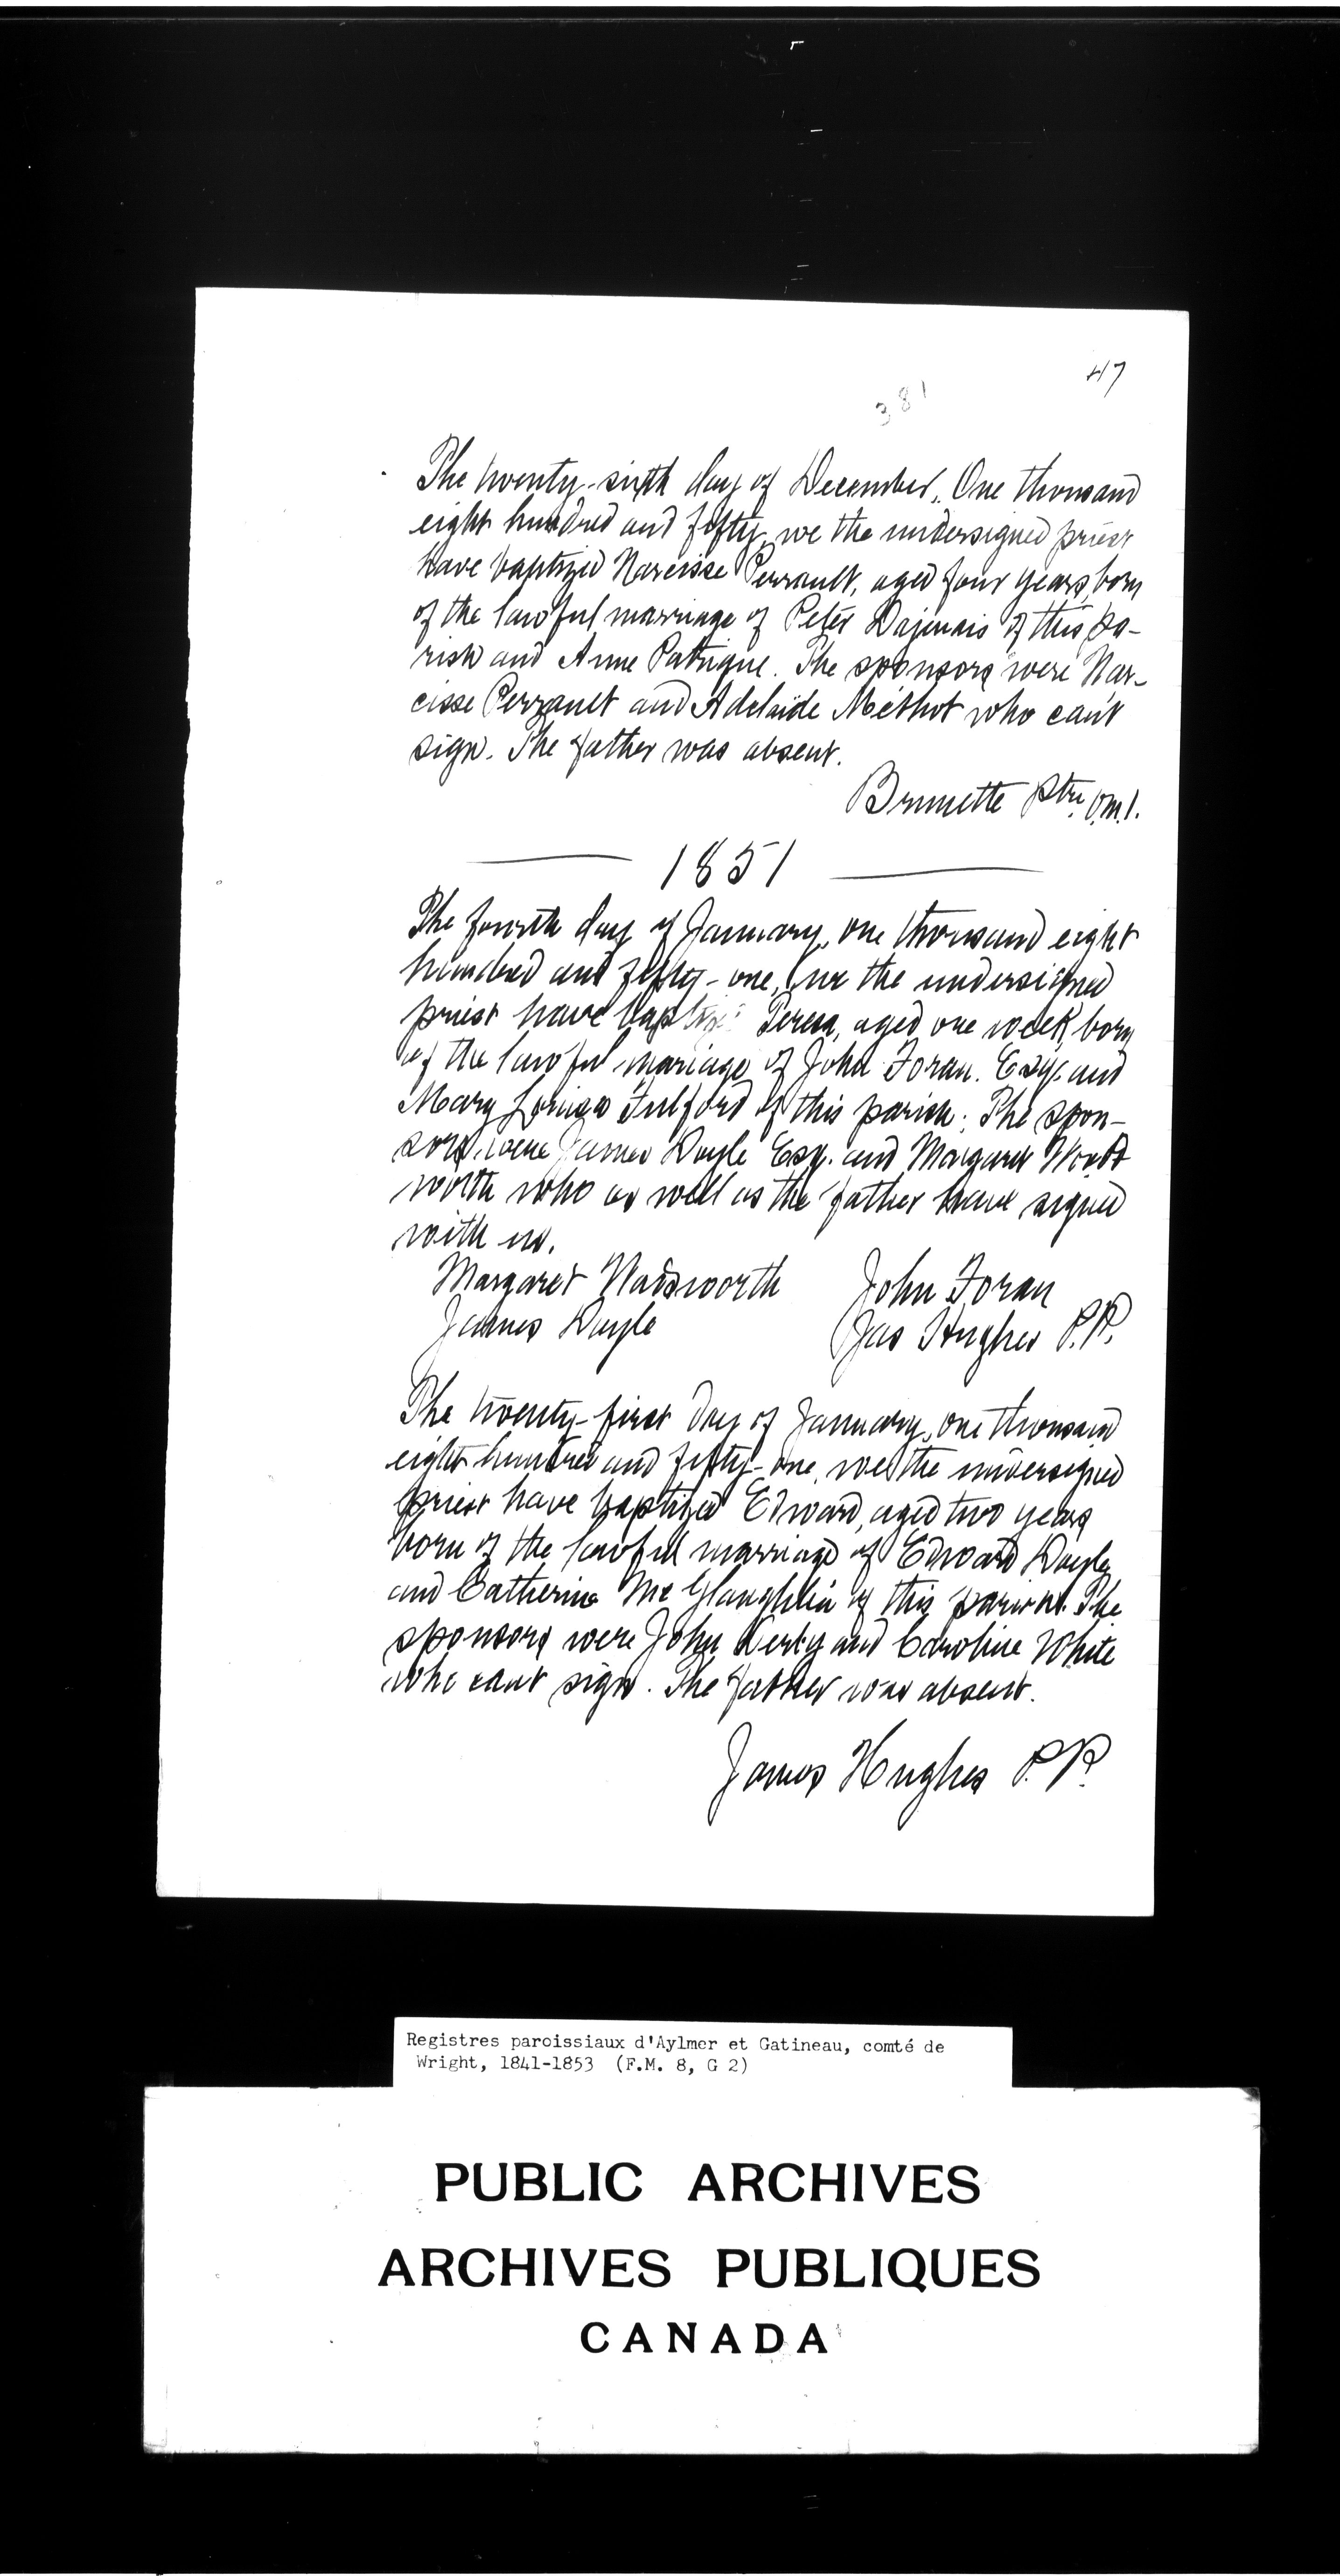 47
381
The twenty-sixth day of December, One thousand
eight hundred and fifty, we the undersigned priest
have baptized Narcisse Perrault, aged four years, born
of the lawful marriage of Peter Dajenais of this pa-
rish and Anne Patrigue. The sponsors were Nar-
cisse Perrault and Adelaïde Méthot who can't
sign. The father was absent.
Brunette Ptre. O.M.I.
1851
The fourth day of January, one thousand eight
hundred and fifty-one, we the undersigned
priest have Teresa, aged one week, born
of the lawful marriage of John Foran. Esq. and
Mary Louisa Fulford of this parish. The spon-
sors were James Doyle Esq. and Margaret
worth who as well as the father have signed
with us.
Margaret Wadsworth John Foran
James Doyle Jas Hughes P.P.
The twenty-first day of January, one thousand
eight hundred and fifty-one, we the undersigned
priest have baptized Edward, aged two years
born of the lawful marriage of Edward Doyle
and Catherine McGlaughlin of this parish. The
sponsors were John and Caroline White
who cant sign. The father was absent.
James Hughes P.P.
Registres paroissiaux d'Aylmer et Gatineau, comté de
Wright, 1841-1853 (F.M. 8, G 2)
PUBLIC ARCHIVES
ARCHIVES PUBLIQUES
CANADA